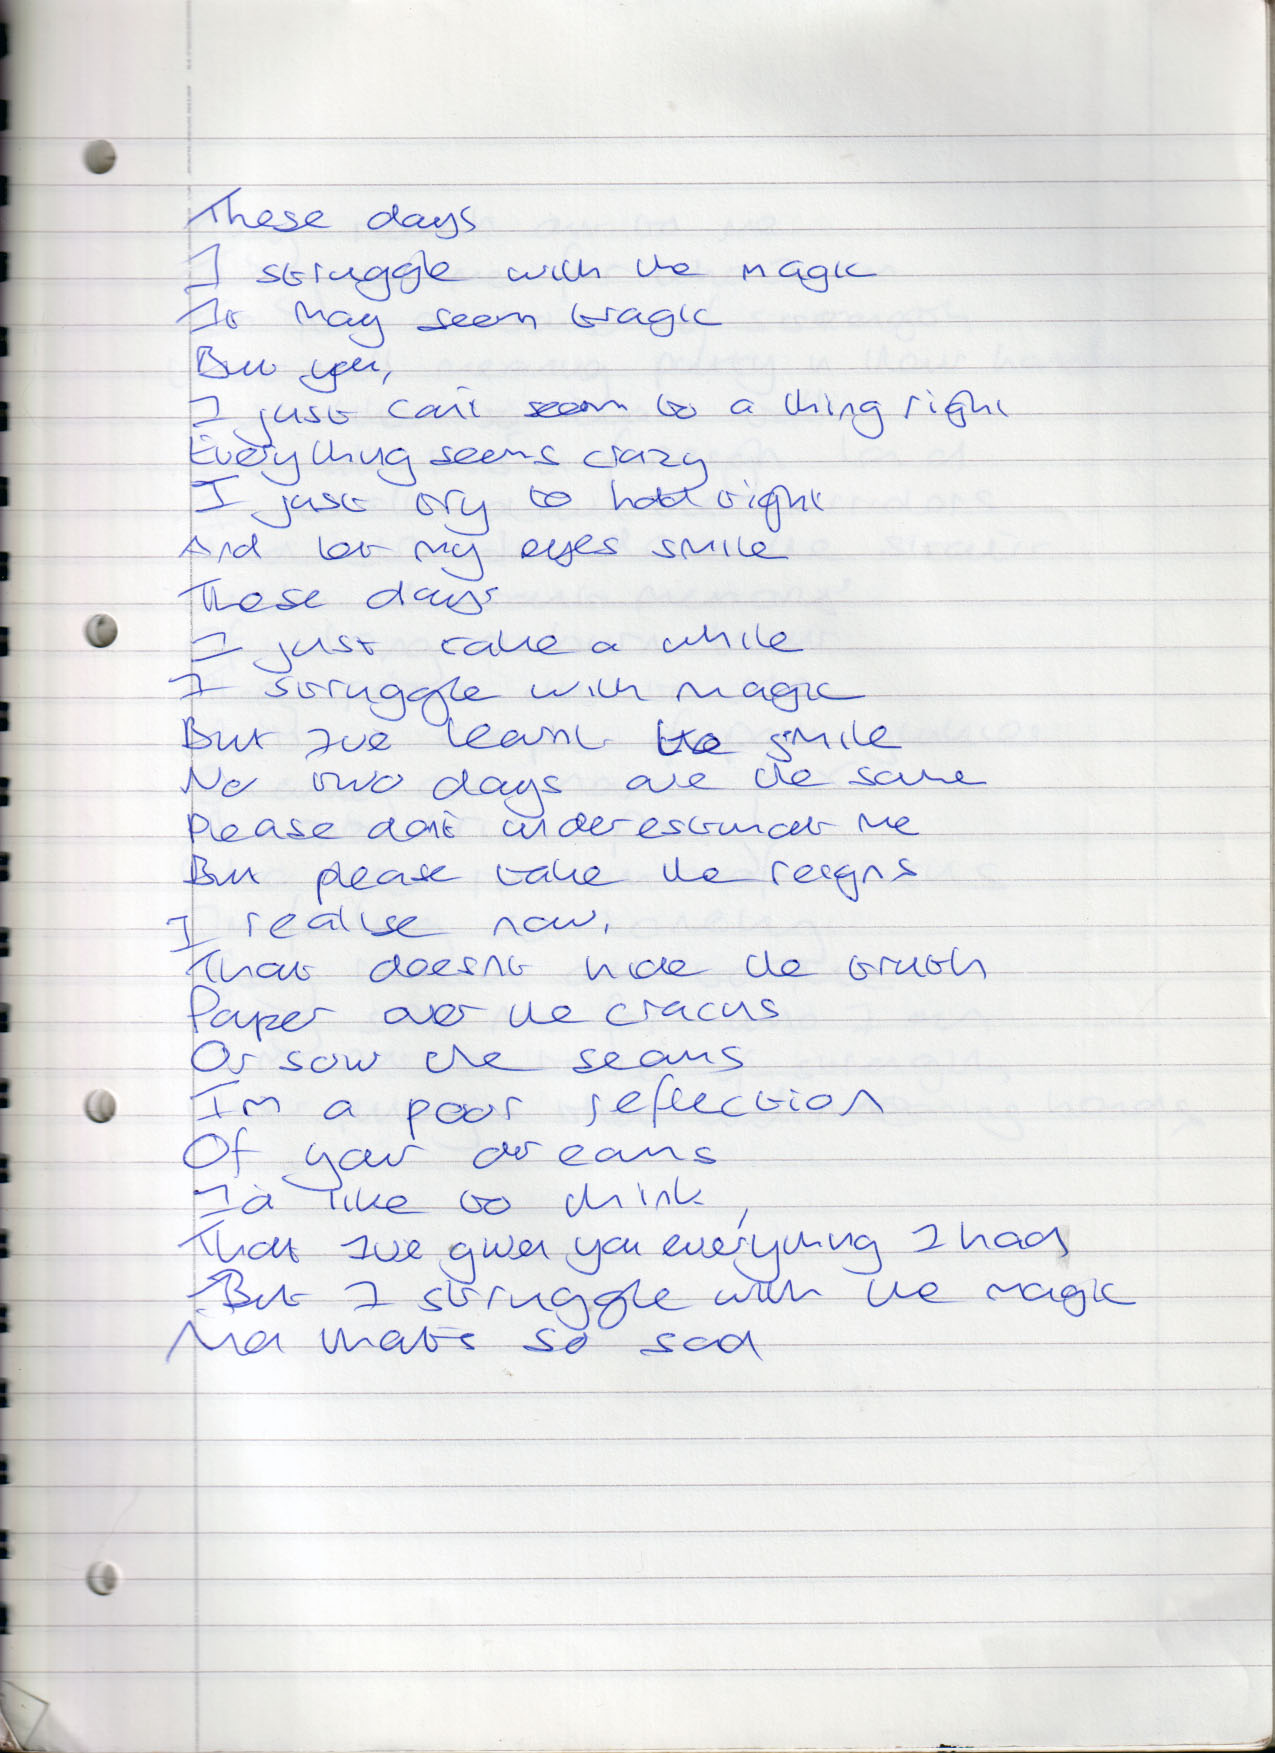 These days
I struggle with the magic
It may seem tragic
But yeu,
I just can't seem to a thing right
Everything seems crazy
I just try to hold tight
And let my eyes smile
These days
I just take a while
I struggle with magic
But Ive learnt to smile
No two days are the same
Please don't underestimate me
But please take the reigns
I realise now,
That doesnt hide the truth
Paper over the cracks
Or sow the seams
Im a poor reflection
Of your dreams
I'd like to think,
That Ive given you everything I had
But I struggle with the magic
And that's so sad